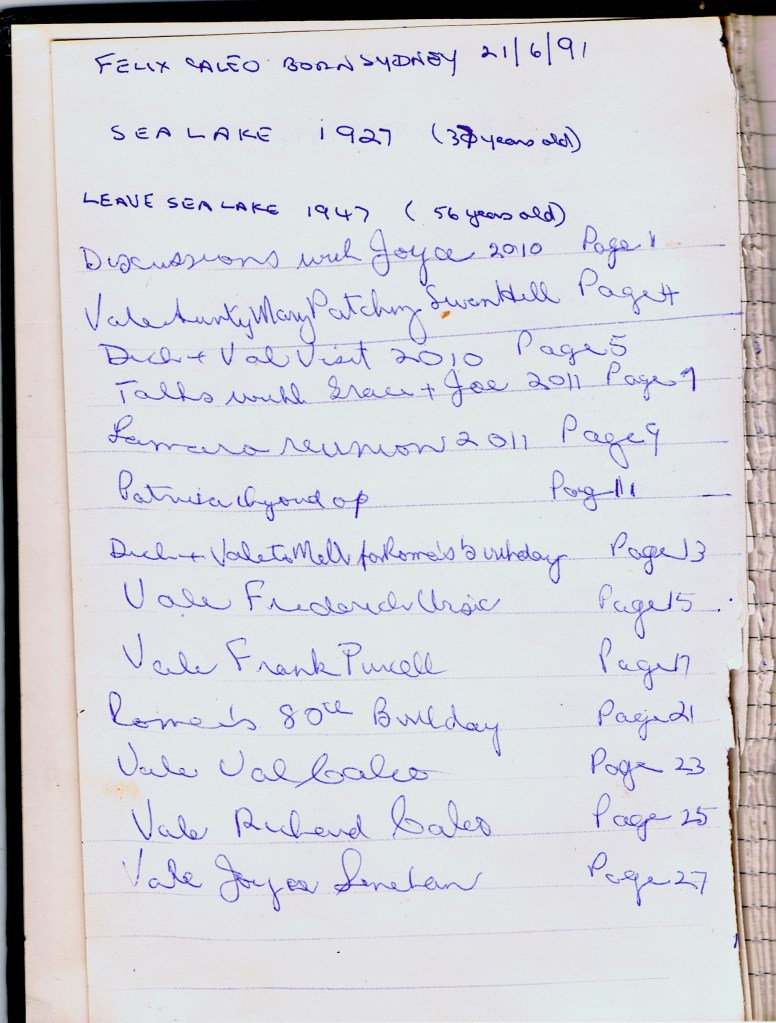 FELIX CALEO BORN SYDNEY 21/6/91
SEA LAKE 1927 (37 years old)
LEAVE SEA LAKE 1947 (56 years old)
Discussions with Joyce 2010 Page 1
Vale Aunty Mary Patching Swan Hill Page 4
Dick + Val Visit 2010 Page 5
Talks with Grace + Joe 2011 Page 7
reunion 2011 Page 9
Patricia op Page 11
Dick + Vale to Melb for Roma's birthday Page 13
Vale Frederick Ursic Page 15
Vale Frank Purcell Page 17
Roma's 80th Birthday Page 21
Vale Val Caleo Page 23
Vale Richard Caleo Page 25
Vale Joyce Lenehan Page 27